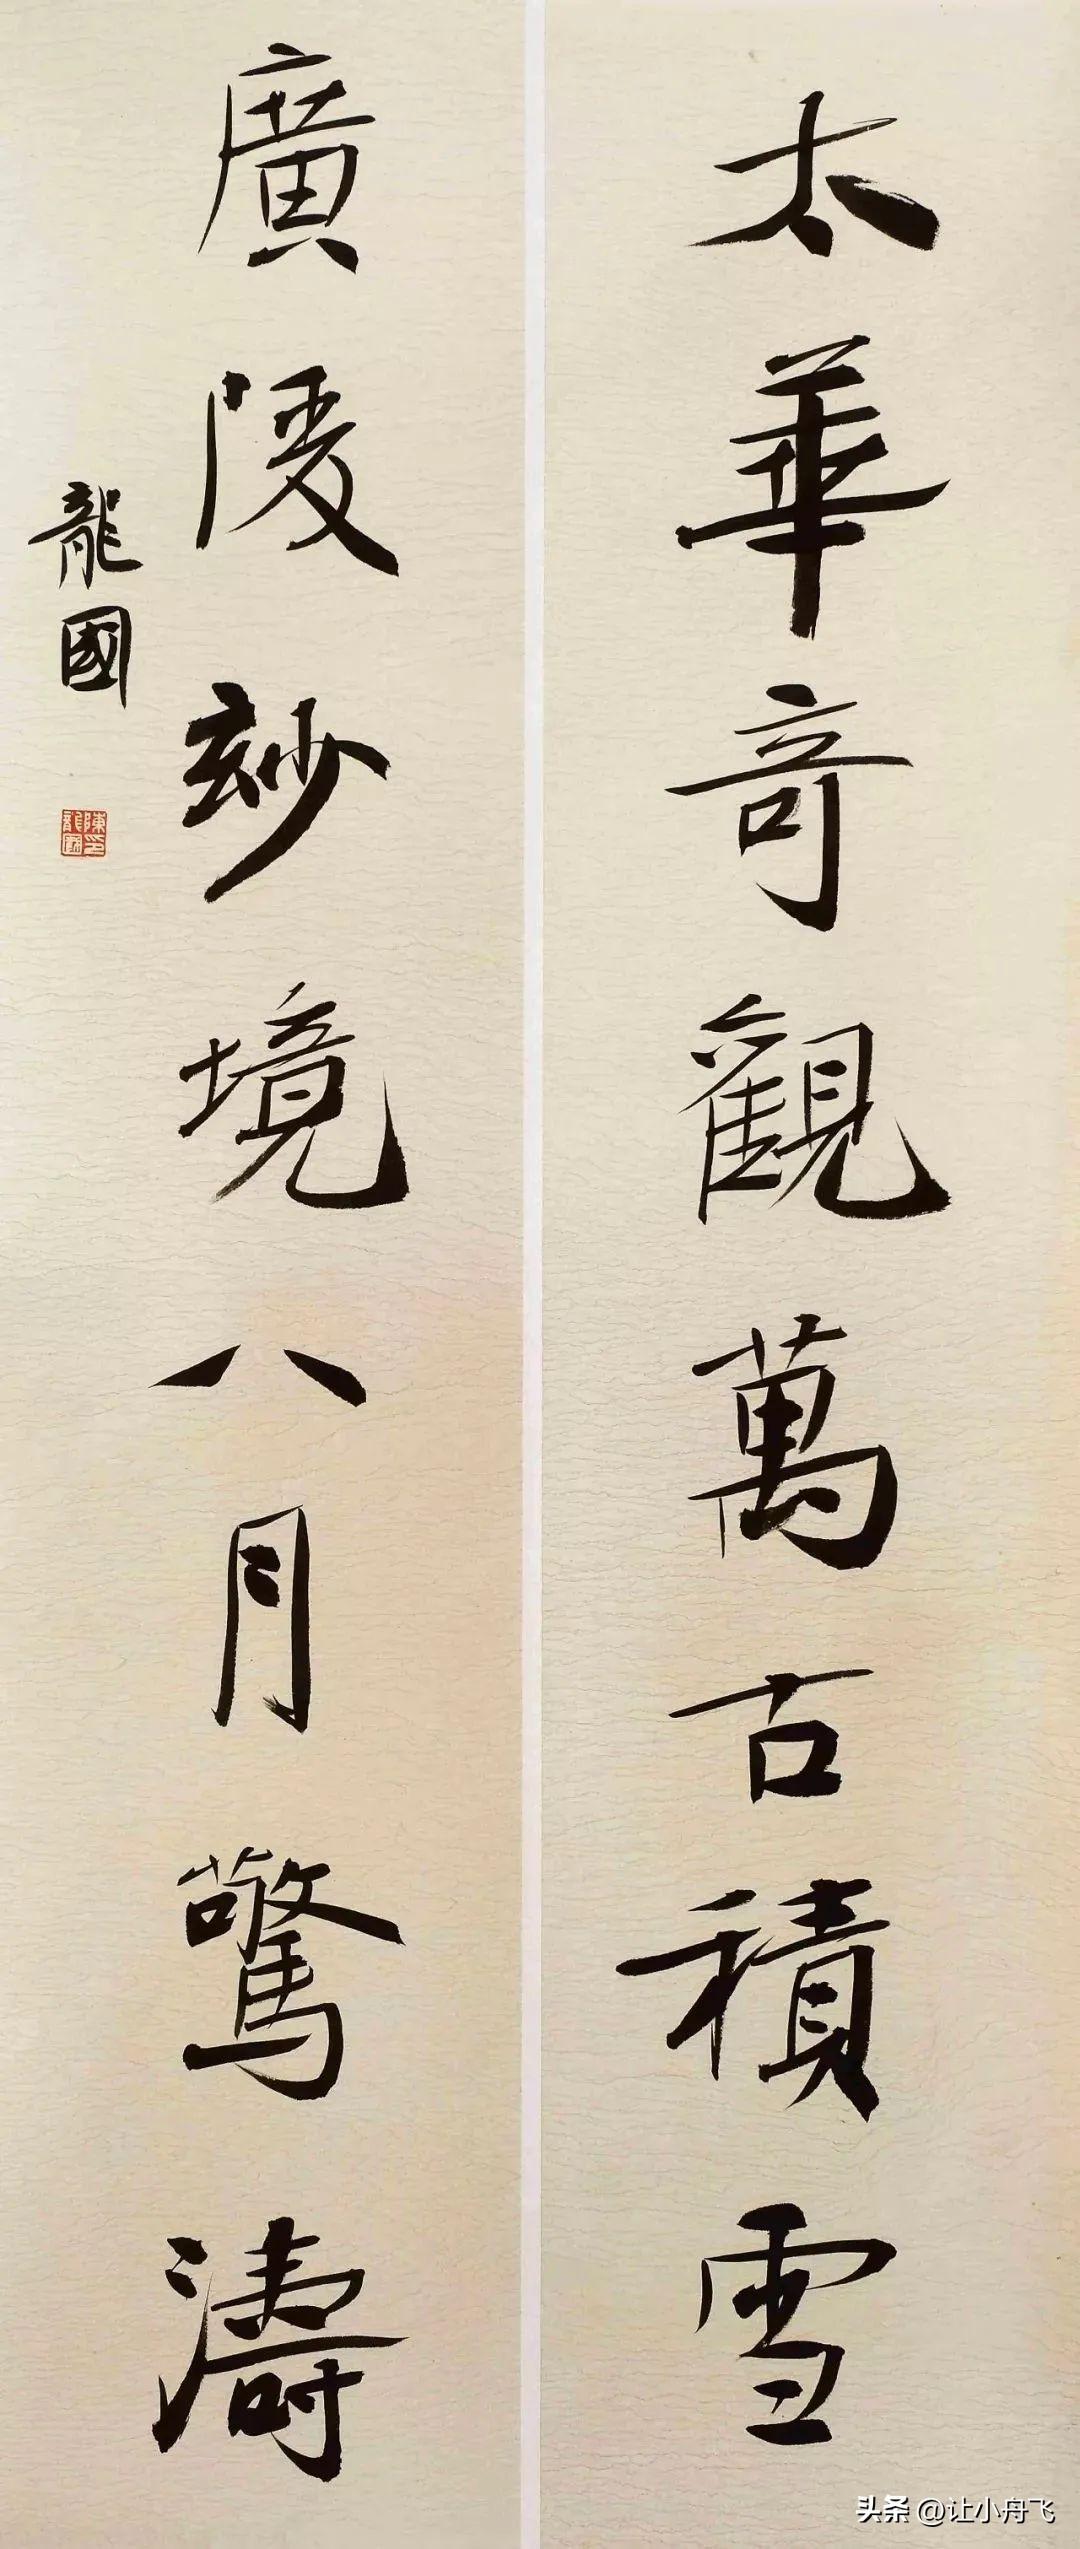 太華奇觀萬古積雪
廣陵玅境八月驚濤
龍國
陳印龍國
头条 @让小舟飞